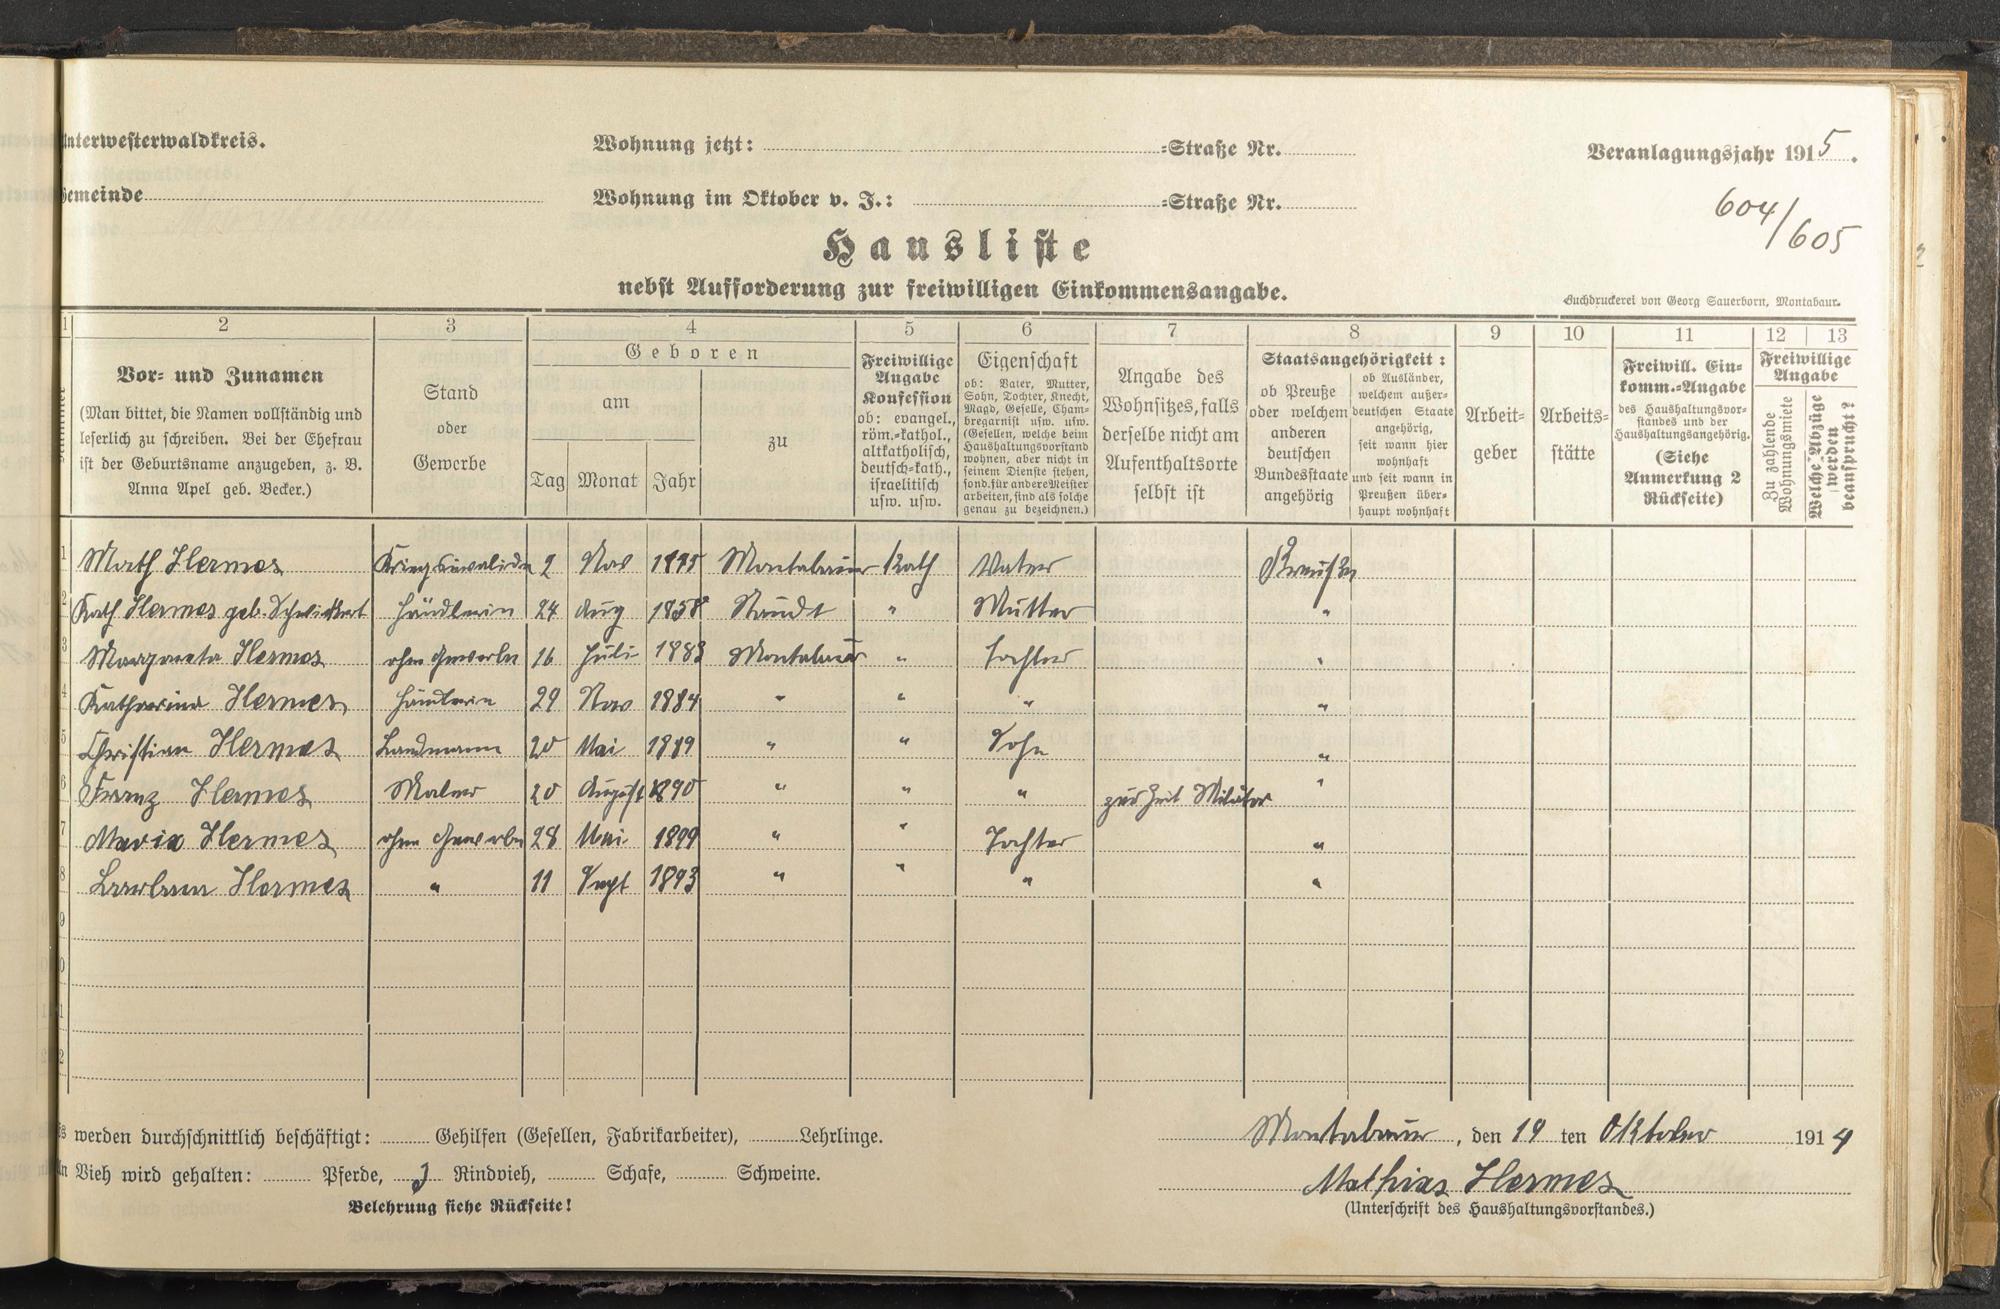 Unterwesterwaldkreis.
Wohnung jetzt: =Straße Nr.
Veranlagungsjahr 1915.
Gemeinde
Wohnung im Oktober v. J.: =Straße Nr.
604/605
Hausliste
nebst Aufforderung zur freiwilligen Einkommensangabe.
Buchdruckerei von Georg Sauerborn, Montabaur.
1 2 3 4 5 6 7 8 9 10 11 12 13
Nummer
Vor- und Zunamen
(Man bittet, die Namen vollständig und
leserlich zu schreiben. Bei der Ehefrau
ist der Geburtsname anzugeben, z. B.
Anna Apel geb. Becker.)
Stand
oder
Gewerbe
Geboren
am
Tag Monat Jahr
zu
Freiwillige
Angabe
Konfession
ob: evangel.,
röm.=kathol.,
altkatholisch,
deutsch=kath.,
israelitisch
usw. usw.
Eigenschaft
ob: Vater, Mutter,
Sohn, Tochter, Knecht,
Magd, Geselle, Cham-
bregarnist usw. usw.
(Gesellen, welche beim
Haushaltungsvorstand
wohnen, aber nicht in
seinem Dienste stehen,
sond. für andere Meister
arbeiten, sind als solche
genau zu bezeichnen.)
Angabe des
Wohnsitzes, falls
derselbe nicht am
Aufenthaltsorte
selbst ist
Staatsangehörigkeit:
ob Preuße
oder welchem
anderen
deutschen
Bundesstaate
angehörig
ob Ausländer,
welchem außer-
deutschen Staate
angehörig,
seit wann hier
wohnhaft
und seit wann in
Preußen über-
haupt wohnhaft
Arbeit-
geber
Arbeits-
stätte
Freiwill. Ein-
komm.=Angabe
des Haushaltungsvor-
standes und der
Haushaltungsangehörig.
(Siehe
Anmerkung 2
Rückseite)
Freiwillige
Angabe
Zu zahlende
Wohnungsmiete
Welche Abzüge
werden
beansprucht?
1 Math Hermes Kriegsinvalide 2 Nov 1845 Montabaur Kath Vater Preußen
2 Kath Hermes geb. Schwickert Händlerin 24 Aug 1858 Staudt " Mutter "
3 Margareta Hermes ohne Gewerbe 16 Juli 1883 Montabaur " Tochter "
4 Katharina Hermes Händlerin 29 Nov 1884 " " " "
5 Christian Hermes Landmann 20 Mai 1889 " " Sohn "
6 Franz Hermes Maler 20 August 1890 " " " zur Zeit Militär "
7 Maria Hermes ohne Gewerbe 28 Mai 1899 " " Tochter "
8 Barbara Hermes " 11 Sept 1893 " " " "
9
0
1
2
Es werden durchschnittlich beschäftigt: Gehilfen (Gesellen, Fabrikarbeiter), Lehrlinge.
Montabaur, den 19 ten Oktober 1914
An Vieh wird gehalten: Pferde, Rindvieh, Schafe, Schweine.
Mathias Hermes
Belehrung siehe Rückseite!
(Unterschrift des Haushaltungsvorstandes.)